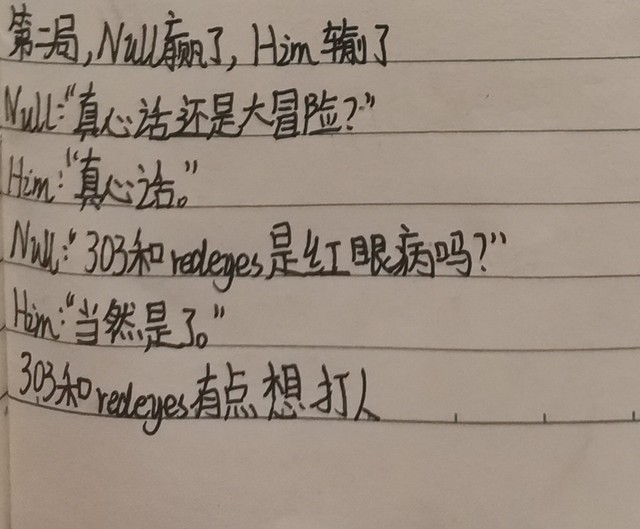 第二局,Null赢了,Him输了
Null:“真心话还是大冒险?”
Him:“真心话。”
Null:“303和redeyes是红眼病吗?”
Him:“当然是了。”
303和redeyes有点想打人